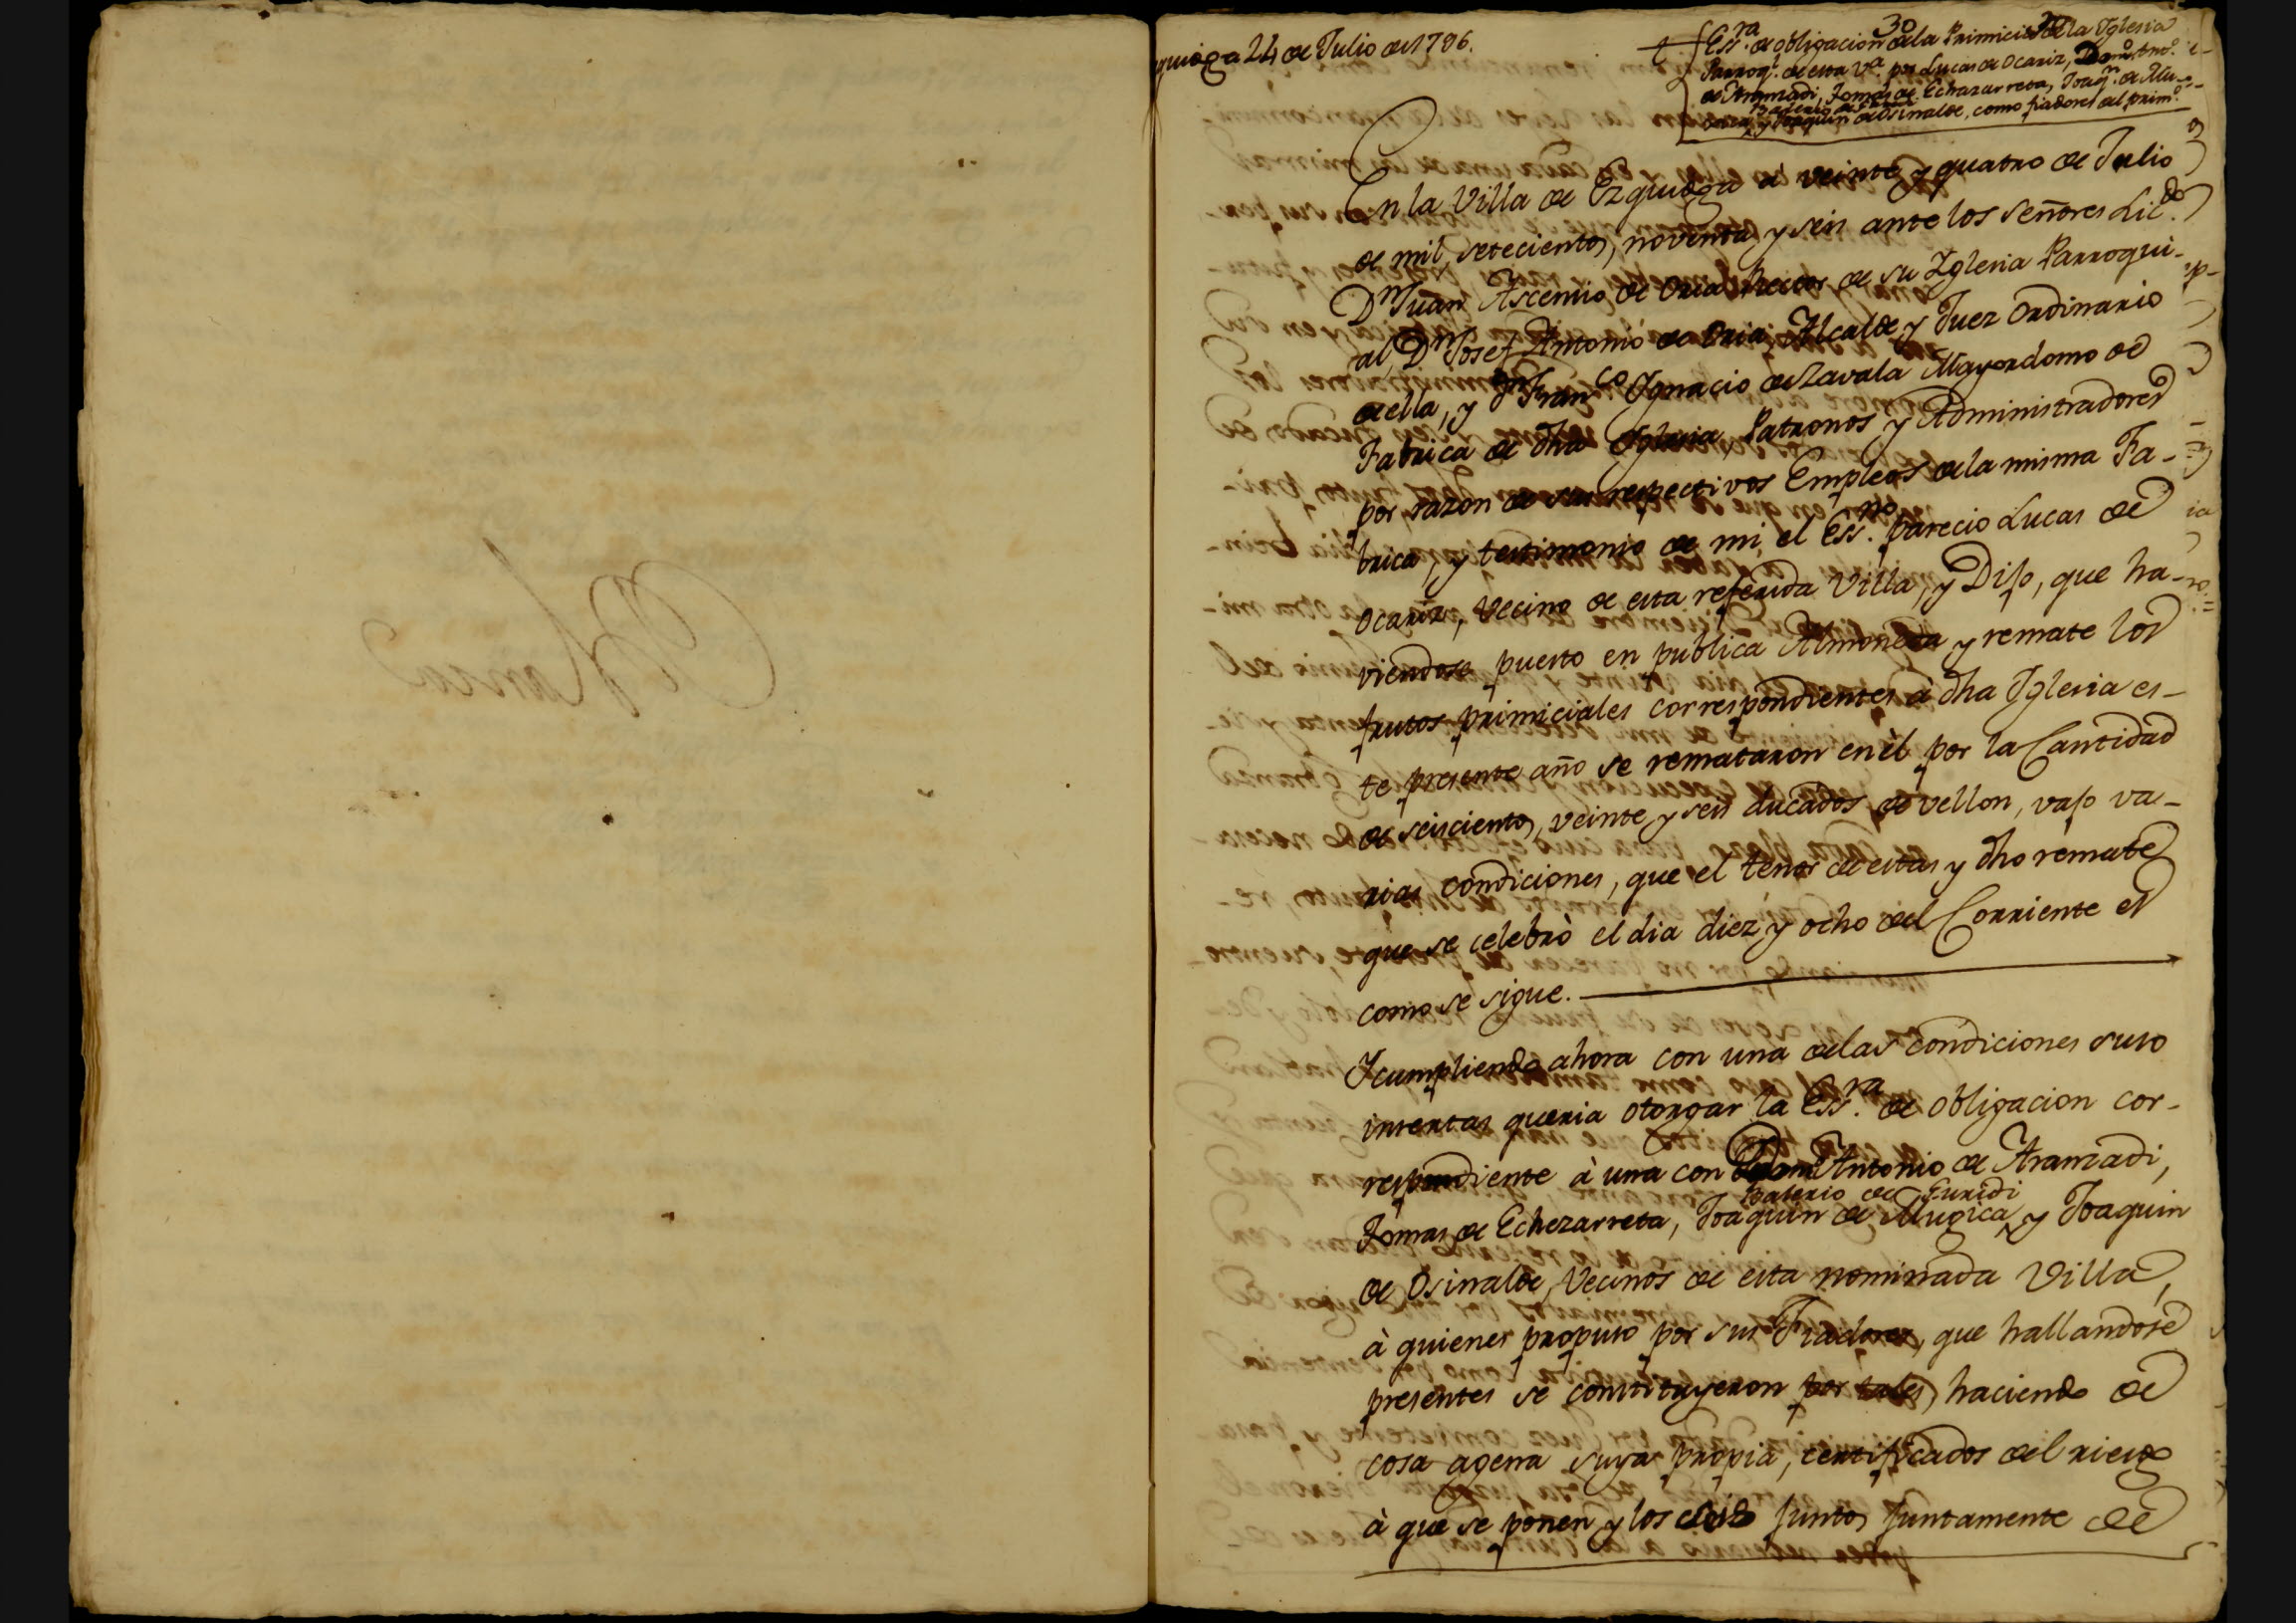 quioga 24 de Julio de 1796.
30
Ess.ra de obligacion de la Primicia de la Iglesia
Parroq.l de esta V.a por Lucas de Ocariz, Ant.o
de Aramadi, Tomas de Echazarreta, Joaq.n de Mu-
y Joaquin de Osinalde, como fiadores del prim.o
En la Villa de Ezquioga à veinte y quatro de Julio
de mil, setecientos, noventa, y seis ante los señores Lic.do
D.n Juan Ascensio de Oria Rector de su Iglesia Parroqui-
al, D.n Josef Antonio de Oria Alcalde, y Juez Ordinario
de ella, y D.n Fran.co Ignacio de Zavala Mayordomo de
Fabrica de dha Iglesia, Patronos y Administradores
por razon de sus respectivos Empleos de la misma Fa-
brica, y testimonio de mi, el Ess.no parecio Lucas de
Ocariz, Vecino de esta referida Villa, y Dijo, que ha-
viendose puesto en publica Almoneda y remate los
frutos primiciales correspondientes à dha Iglesia es-
te presente año se remataron en él por la Cantidad
de seiscientos, veinte y seis ducados de vellon, vajo va-
rias condiciones, que el tenor de estas y dho remate
que se celebrò el dia diez y ocho del Corriente es
como se sigue.
Y cumpliendo ahora con una de las condiciones suso
insertas queria otorgar la Ess.ra de obligacion cor-
respondiente à una con Antonio de Aramadi,
Baterio de Euridi
Tomas de Echezarreta, Joaquin de Mugica, y Joaquin
de Osinalde, Vecinos de esta nominada Villa,
à quienes propuso por sus Fiadores, que hallandose
presentes se constituyeron por tales, haciendo de
cosa agena suya propia, certificados del riesgo
à que se ponen y los seis juntos juntamente de